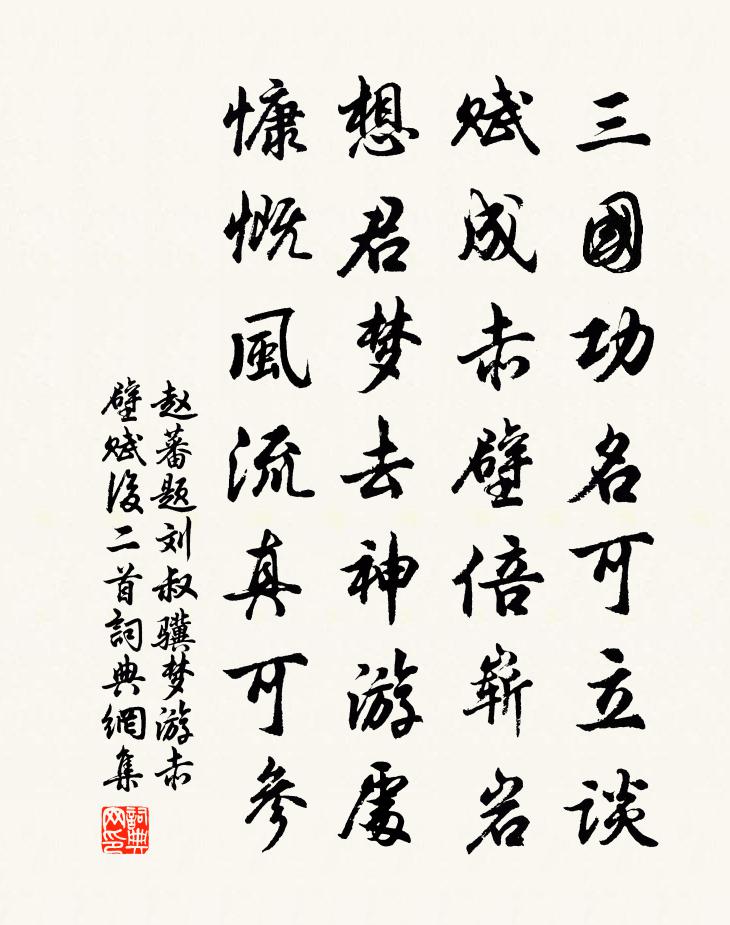 三國功名可立谈
赋成赤壁倍嶄岩
想君梦去神游處
慷慨風流真可參
赵蕃题刘叔骥梦游赤
壁赋後二首詞典網集
詞典
网印